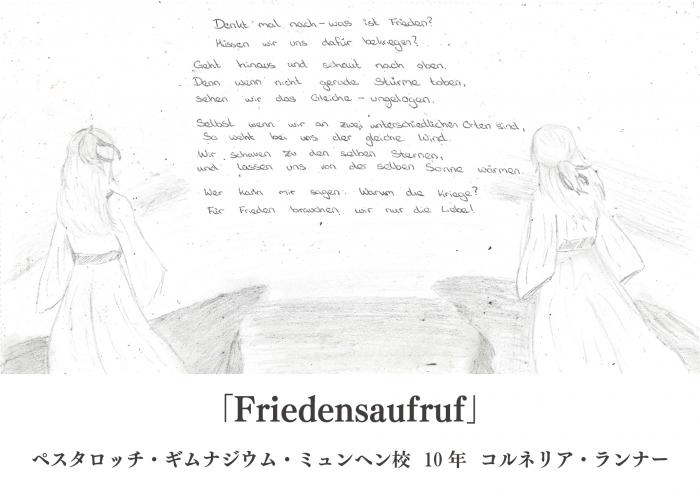 Denkt mal nach – was ist Frieden?
Müssen wir uns dafür bekriegen?
Geht hinaus und schaut nach oben.
Denn wenn nicht gerade Stürme toben,
sehen wir das Gleiche – ungelogen.
Selbst wenn wir an zwei unterschiedlichen Orten sind,
So weht bei uns der gleiche Wind.
Wir schauen zu den selben Sternen,
und lassen uns von der selben Sonne wärmen.
Wer kann mir sagen: Warum die Kriege?
Für Frieden brauchen wir nur die Liebe!
「Friedensaufruf」
ペスタロッチ・ギムナジウム・ミュンヘン校 10年 コルネリア・ランナー